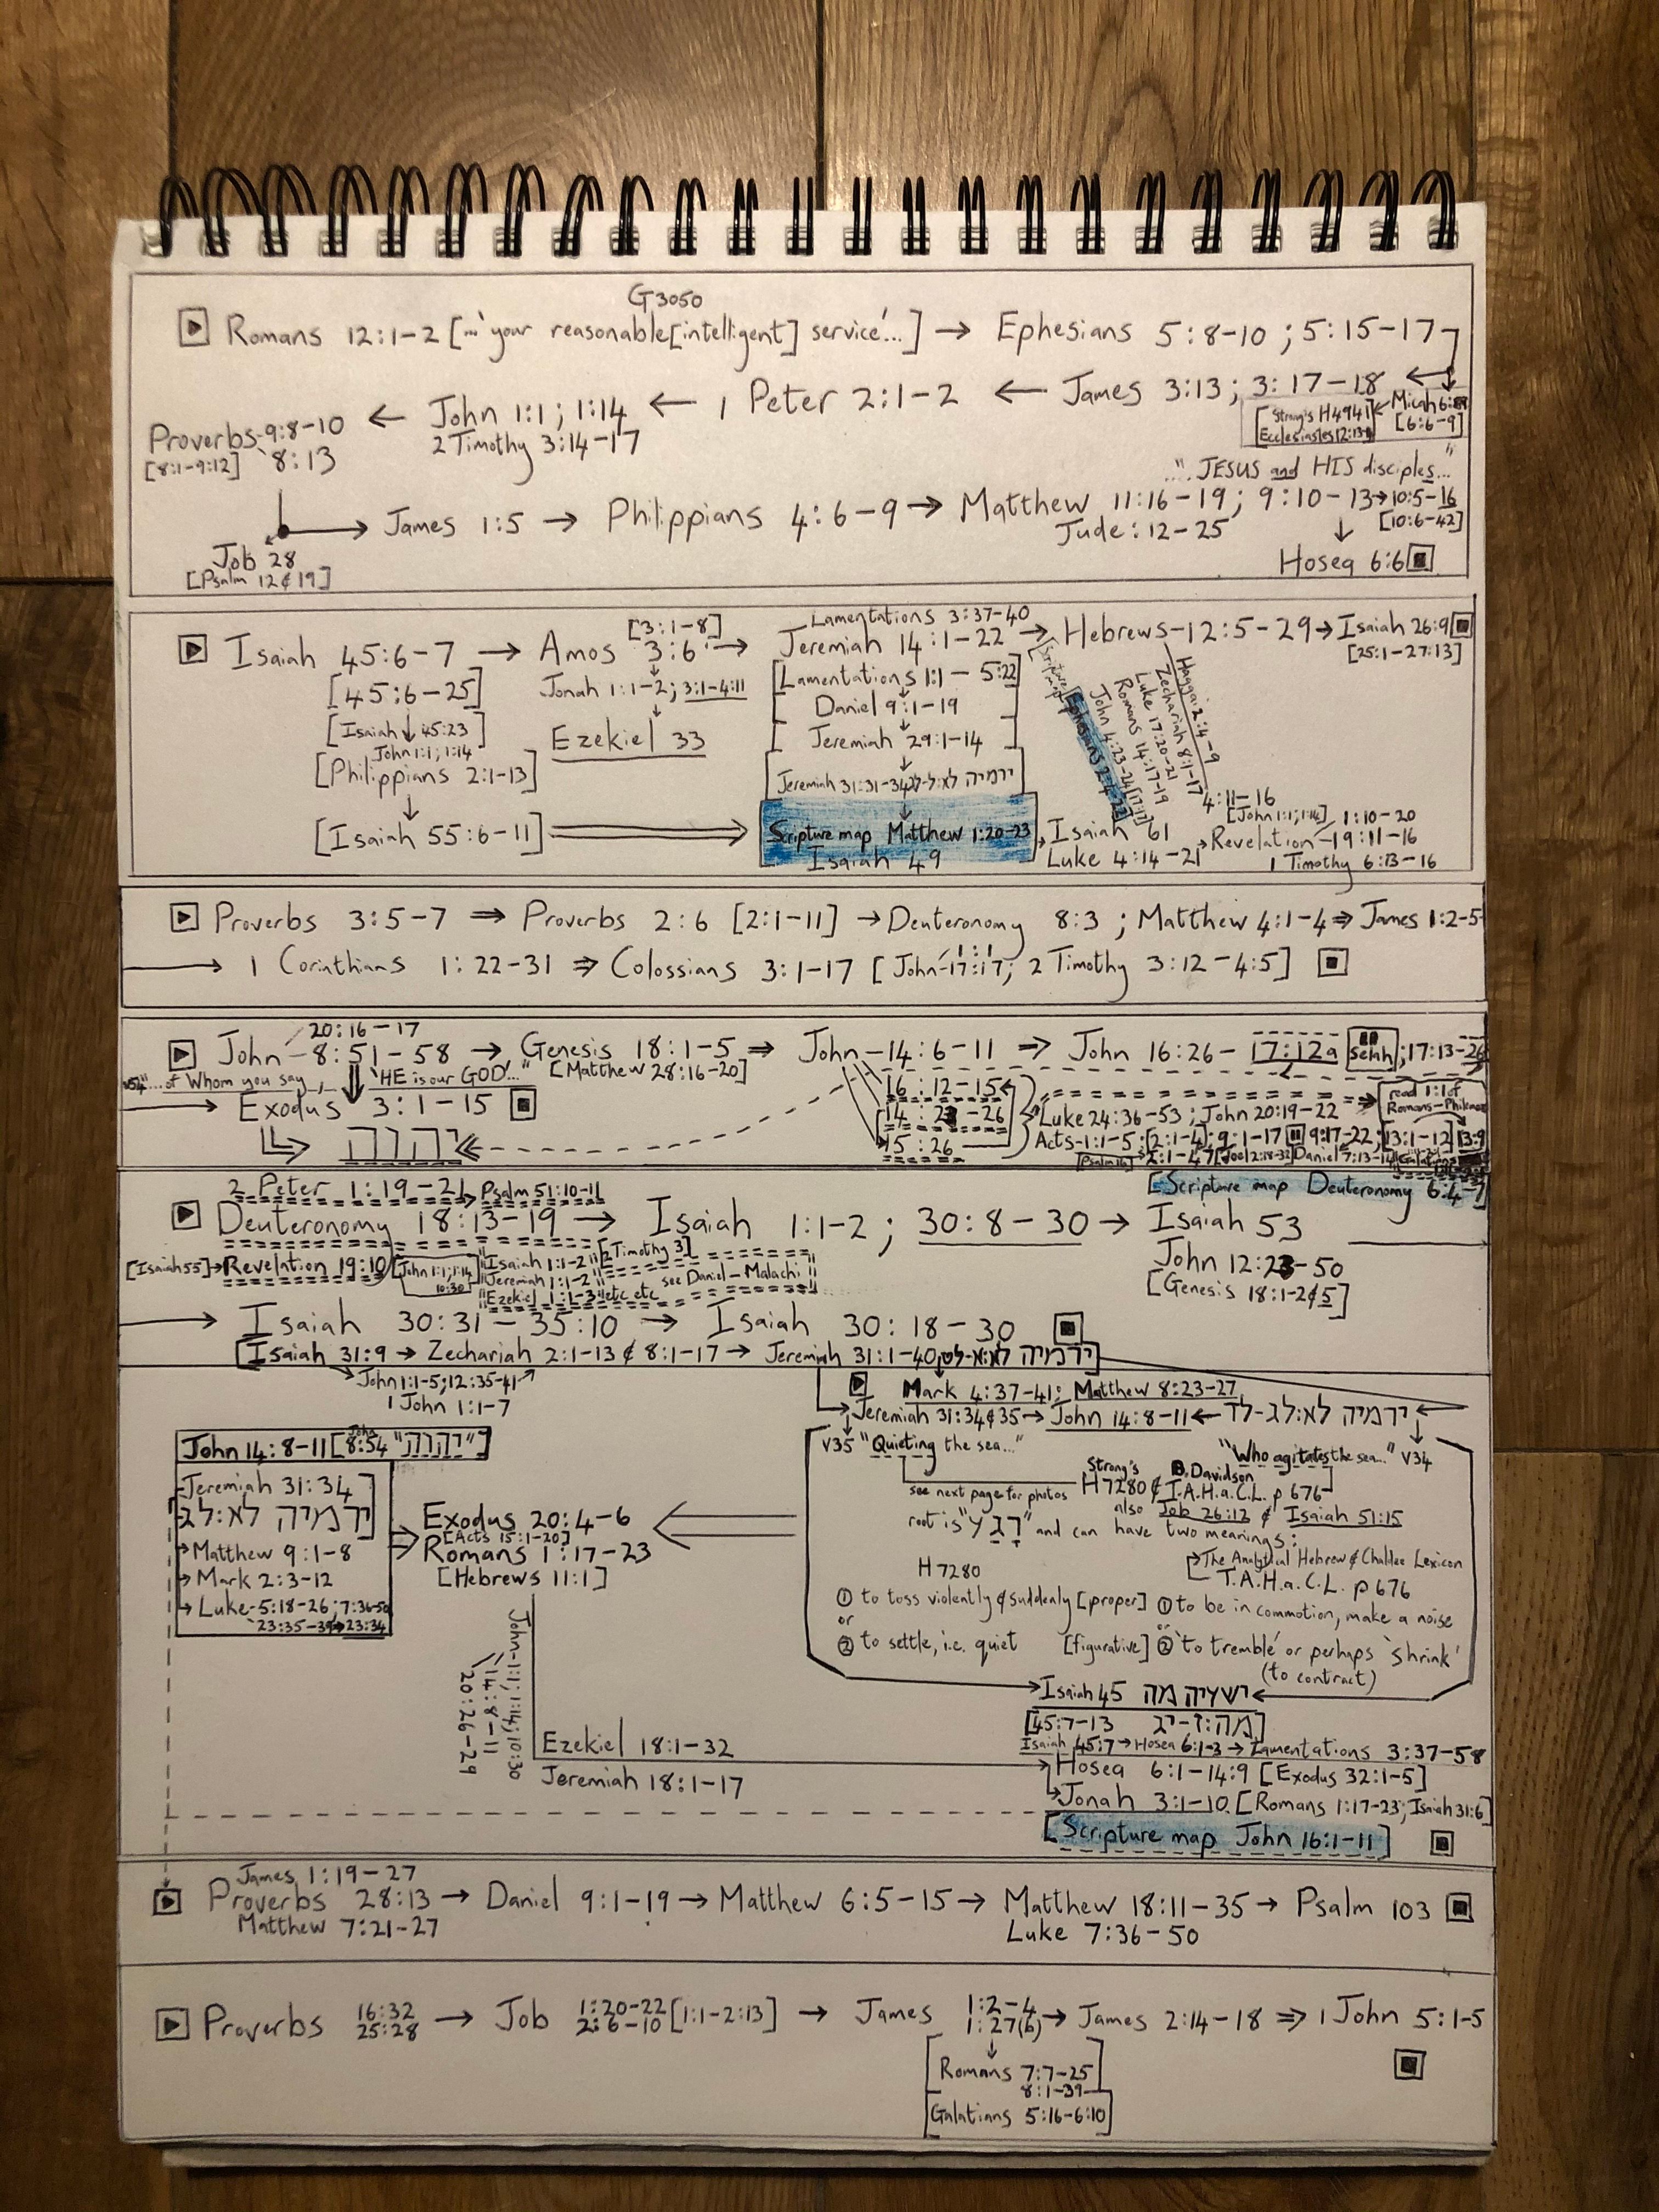 G3050
Romans 12:1-2 [...'your reasonable[intelligent] service'...] → Ephesians 5:8-10 ; 5:15-17
Proverbs-9:8-10 ← John 1:1; 1:14 ← 1 Peter 2:1-2 ← James 3:13; 3:17-18
[8:1-9:12] 8:13
2 Timothy 3:14-17
[Strong's H4941 ← Micah 6:
Ecclesiastes 12:13 [6:6-9]
"...JESUS and HIS disciples..."
→ James 1:5 → Philippians 4:6-9 → Matthew 11:16-19; 9:10-13→10:5-16
Jude:12-25 [10:6-42]
Job 28
[Psalm 12¢19]
Hosea 6:6
Lamentations 3:37-40
[3:1-8]
Isaiah 45:6-7 → Amos 3:6 → Jeremiah 14:1-22 → Hebrews-12:5-29→Isaiah 26:9
[25:1-27:13]
[45:6-25]
Jonah 1:1-2; 3:1-4:11
[Lamentations 1:1-5:22]
[Isaiah 45:23]
Daniel 9:1-19
John 1:1; 1:14
Ezekiel 33
Jeremiah 29:1-14
[Philippians 2:1-13]
Jeremiah 31:31-34 ירמיה
Haggai 2:4-9
Zechariah 8:1-17
Luke 17:20-21
Romans 14:17-19
John 4:23-24[17:17]
4:11-16
[John 1:1; 1:14] 1:10-20
[Isaiah 55:6-11] Scripture map Matthew 1:20-23 Isaiah 61 →Revelation-19:11-16
Isaiah 49 Luke 4:14-21 1 Timothy 6:13-16
Proverbs 3:5-7 ⇒ Proverbs 2:6 [2:1-11] →Deuteronomy 8:3 ; Matthew 4:1-4⇒ James 1:2-5
→ 1 Corinthians 1:22-31 ⇒ Colossians 3:1-17 [John-17:17; 2 Timothy 3:12-4:5]
20:16-17
John-8:51-58 → Genesis 18:1-5⇒ John-14:6-11 ⇒ John 16:26-17:12a selah ;17:13-26
v54"...of Whom you say, 'HE is our GOD'..." [Matthew 28:16-20]
→ Exodus 3:1-15
16:12-15
read 1:1 of Romans-Philemon
14: -26
Luke 24:36-53 ; John 20:19-22
יהוה
15:26
Acts-1:1-5;[2:1-4]; 9:1-17 9:17-22;[13:1-12] 13:9
[Psalm 16] 2:1-47[Joel 2:18-32]Daniel 7:13-14
[Scripture map Deuteronomy 6:4-7]
2 Peter 1:19-21→ Psalm 51:10-11
Deuteronomy 18:13-19 → Isaiah 1:1-2 ; 30:8-30→ Isaiah 53
[Isaiah 55]→Revelation 19:10 [John 1:1; 1:14 10:30] Isaiah 1:1-2 [2 Timothy 3]
Jeremiah 1:1-2 see Daniel-Malachi
Ezekiel 1:1-3 etc etc
John 12:23-50
[Genesis 18:1-2¢5]
→ Isaiah 30:31-35:10 → Isaiah 30:18-30
[Isaiah 31:9 → Zechariah 2:1-13 ¢ 8:1-17→ Jeremiah 31:1-40 ירמיה]
John 1:1-5;12:35-41
1 John 1:1-7
Mark 4:37-41; Matthew 8:23-27
Jeremiah 31:34¢35→ John 14:8-11← ירמיה לא:לג-לד
John 14:8-11[John 8:54 "יהוה"]
v35 "Quieting the sea..."
"Who agitates the sea..." v34
Jeremiah 31:34
ירמיה לא:לג
see next page for photos
Strong's H7280 ¢ B.Davidson T.A.H.a.C.L. p676
also Job 26:12 ¢ Isaiah 51:15
root is "רגע" and can have two meanings:
Exodus 20:4-6
[Acts 15:1-20]
Romans 1:17-23
[Hebrews 11:1]
Matthew 9:1-8
Mark 2:3-12
Luke-5:18-26;7:36-50
23:35-39→23:34
The Analytical Hebrew ¢ Chaldee Lexicon
H7280 T.A.H.a.C.L. p676
① to toss violently ¢ suddenly [proper] ① to be in commotion, make a noise
or or
② to settle, i.e. quiet [figurative] ② 'to tremble' or perhaps 'shrink'
(to contract)
John-1:1; 1:14; 10:30
14:8-11
20:26-29
Isaiah 45 ישעיה מה
[45:7-13 מה:ז-יג]
Isaiah 45:7→Hosea 6:1-3→Lamentations 3:37-58
Ezekiel 18:1-32
Jeremiah 18:1-17
Hosea 6:1-14:9 [Exodus 32:1-5]
Jonah 3:1-10 [Romans 1:17-23; Isaiah 31:6]
[Scripture map John 16:1-11]
James 1:19-27
Proverbs 28:13→ Daniel 9:1-19→ Matthew 6:5-15→ Matthew 18:11-35→ Psalm 103
Matthew 7:21-27 Luke 7:36-50
Proverbs 16:32 → Job 1:20-22 [1:1-2:13] → James 1:2-4 → James 2:14-18 ⇒ 1 John 5:1-5
25:28 2:6-10 1:27(b)
[Romans 7:7-25
8:1-39
Galatians 5:16-6:10]